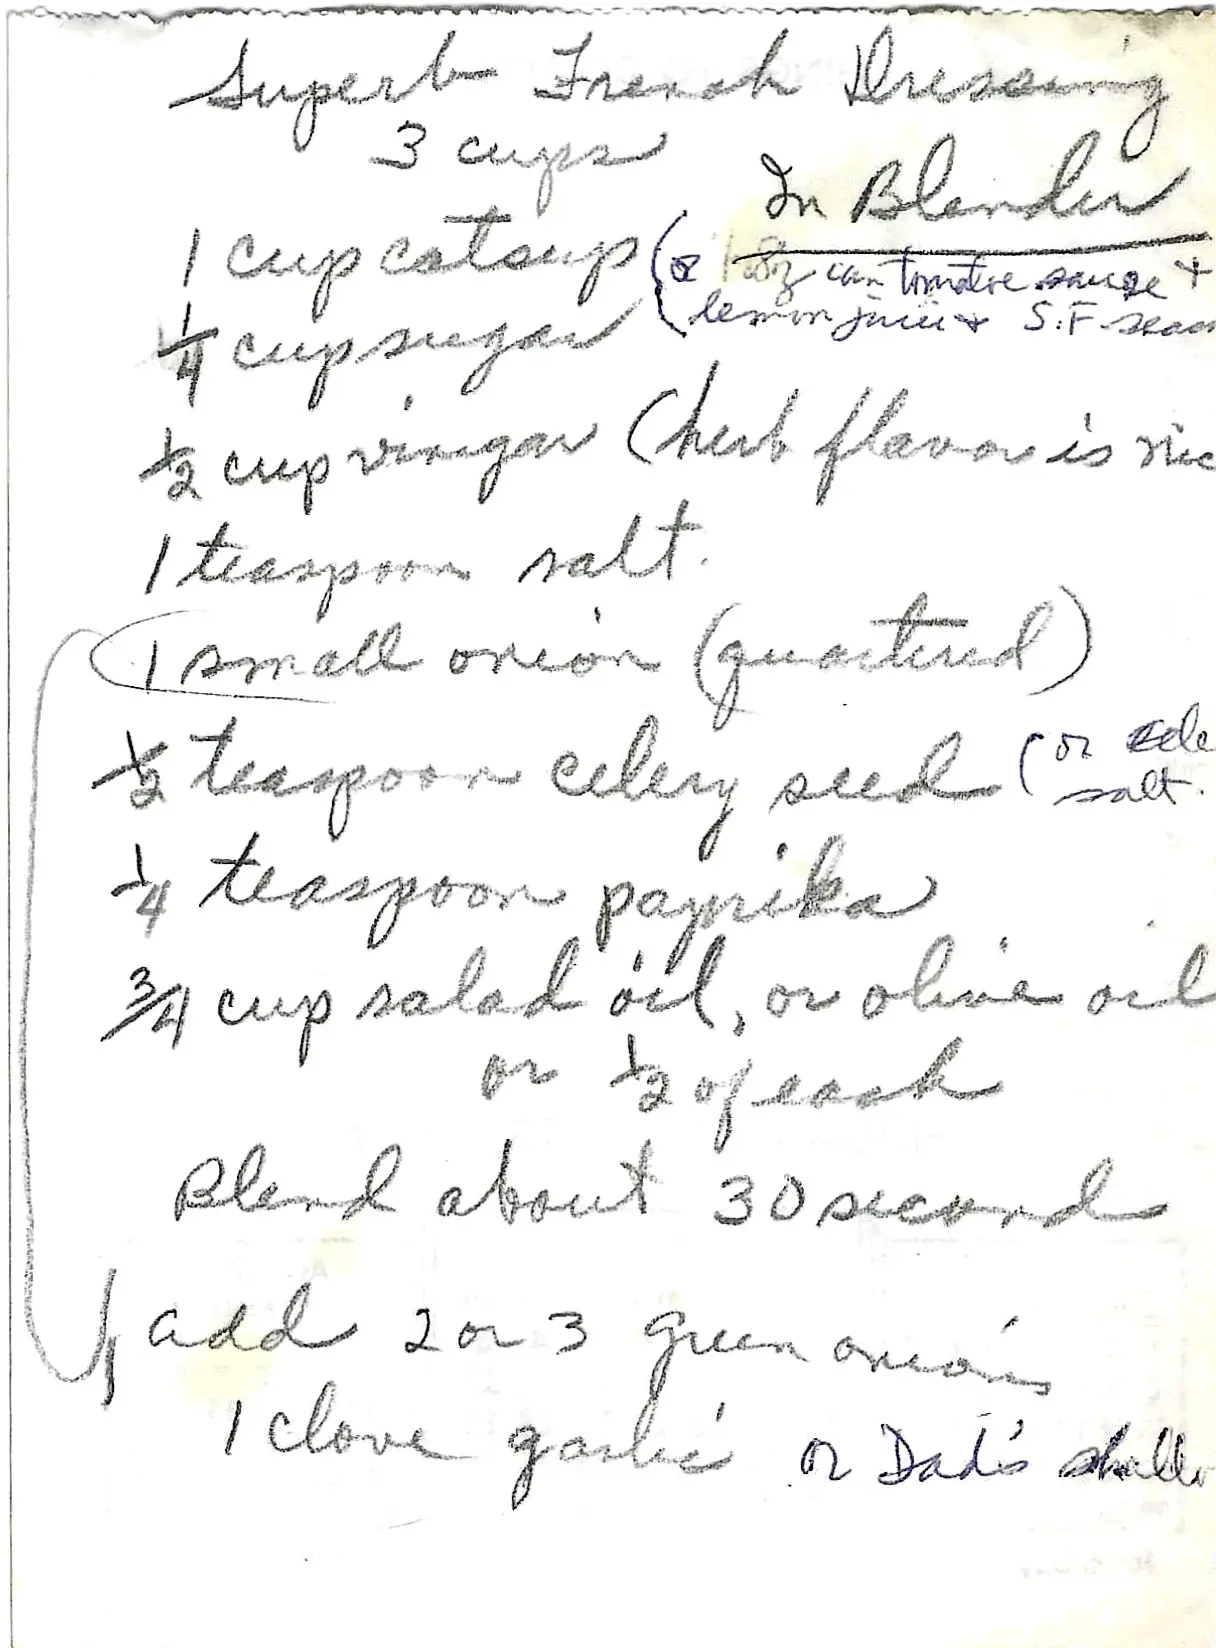 Superb French Dressing
3 cups
In Blender
1 cup catsup (or 1 8oz can tomatoe sauce +
lemon juice + S.F. seas
1/4 cup sugar
1/2 cup vinegar (herb flavor is nic
1 teaspoon salt.
1 small onion (quartered)
1/2 teaspoon celery seed (or cele
salt.
1/4 teaspoon paprika
3/4 cup salad oil, or olive oil
or 1/2 of each
Blend about 30 second
add 2 or 3 green onions
1 clove garlic or Dad's shallo